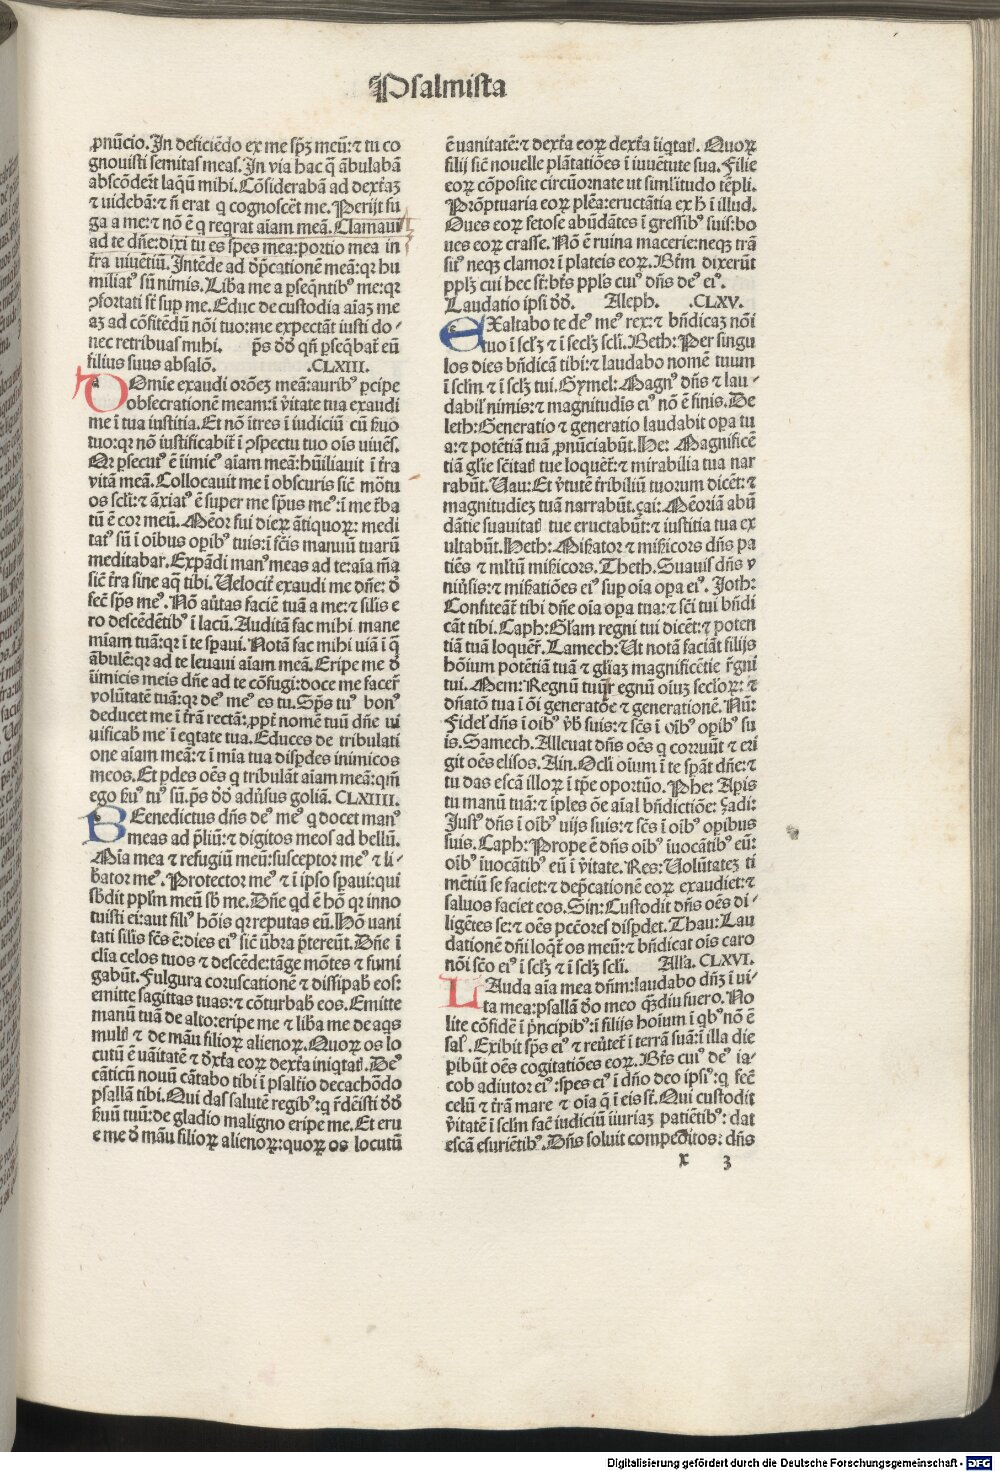 Psalmista
ꝓnũcio. In deficiẽdo ex me sp̃ȝ meũ: ⁊ tu co
gnouisti semitas meas. In via hac q̃ ãbulabã
abscõdeř̃t laqũ mihi. Cõsiderabã ad dext̃aȝ
⁊ uidebã: ⁊ ñ erat q cognosceřt me. Perijt fu
ga a me: ⁊ nõ ẽ q reqrat aĩam meã. Clamaui
ad te dñe: dixi tu es spes mea: portio mea in
t̃ra viuẽtiũ. Intẽde ad dp̃cationẽ meã: qr hu
miliatꝰ sũ nimis. Liƀa me a ꝑseqñtibꝰ me: qr
ꝯfortati st̃ suꝑ me. Educ de custodia aĩaȝ me
aȝ ad cõfitẽdũ nõi tuo: me expectãt iusti do-
nec retribuas mihi. p̃s dd̃ qñ ꝑseqbat̃ eũ
filius suus absalõ. .CLXIII.
Domie exaudi orõeȝ meã: auribꝰ ꝑcipe
obsecrationẽ meam: ĩ ṽitate tua exaudi
me ĩ tua iustitia. Et nõ ĩtres ĩ iudiciũ cũ ẜuo
tuo: qr nõ iustificabit̃ ĩ ꝯspectu tuo oĩs viuẽs.
Qr ꝑsecutꝰ ẽ ĩimicꝰ aĩam meã: hũiliauit ĩ t̃ra
vitã meã. Collocauit me ĩ obscuris sic̃ mõtu
os scl̃i: ⁊ ãxiatꝰ ẽ super me sp̃us meꝰ: ĩ me t̃ba
tũ ẽ cor meũ. Mẽor fui dieꝝ ãtiquoꝝ: medi
tatꝰ sũ ĩ oĩbus oꝑibꝰ tuis: ĩ fc̃is manuũ tuarũ
meditabar. Expãdi manꝰ meas ad te: aĩa m̃a
sic̃ t̃ra sine aq̃ tibi. Velocit̃ exaudi me dñe: d̃
fec̃ sp̃s meꝰ. Nõ aũtas faciẽ tuã a me: ⁊ silis e
ro descẽdẽtibꝰ ĩ lacũ. Auditã fac mihi mane
mĩam tuã: qr ĩ te sꝑaui. Notã fac mihi uiã ĩ q̃
ãbulẽ: qr ad te leuaui aĩam meã. Eripe me d̃
ĩimicis meis dñe ad te cõfugi: doce me facer̃
volũtatẽ tuã: qr deꝰ meꝰ es tu. Sp̃s tuꝰ bonꝰ
deducet me ĩ t̃rã rectã: ꝓpt̃ nomẽ tuũ dñe ui
uificab̃ meꝰ ĩ eq̃tate tua. Educes de tribulati
one aĩam meã: ⁊ ĩ mĩa tua disꝑdes inimicos
meos. Et ꝑdes oẽs q tribulãt aĩam meã: qm̃
ego ẜuꝰ tuꝰ sũ. p̃s dd̃ adũsus goliã. CLXIIII.
BEenedictus dñs deꝰ meꝰ q docet manꝰ
meas ad p̃liũ: ⁊ digitos meos ad bellũ.
Mĩa mea ⁊ refugiũ meũ: susceptor meꝰ ⁊ li-
ƀator meꝰ. Protector meꝰ ⁊ ĩ ipso sꝑaui: qui
sb̃dit pplm̃ meũ sb̃ me. Dñe qd ẽ hõ qr inno
tuisti ei: aut filiꝰ hõis qr reputas eũ. Hõ uani
tati silis fc̃s ẽ: dies eiꝰ sic̃ ũbra p̃tereũt. Dñe ĩ
clĩa celos tuos ⁊ descẽde: tãge mõtes ⁊ fumi
gabũt. Fulgura coruscationẽ ⁊ dissipab̃ eos:
emitte sagittas tuas: ⁊ cõturbab̃ eos. Emitte
manũ tuã de alto: eripe me ⁊ liƀa me de aqs
mult̃ ⁊ de mãu filioꝝ alienoꝝ. Quoꝝ os lo
cutũ ẽ uãitatẽ ⁊ dx̃ta eoꝝ dext̃a iniqtat̃. Deꝰ
cãticũ nouũ cãtabo tibi ĩ psaltio decachõdo
psallã tibi. Qui das salutẽ regibꝰ: q r̃dẽisti dd̃
ẜuũ tuũ: de gladio maligno eripe me. Et eru
e me d̃ mãu filioꝝ alienoꝝ: quoꝝ os locutũ
ẽ uanitatẽ: ⁊ dext̃a eoꝝ dext̃a ĩiqtat̃. Quoꝝ
filij sic̃ nouelle plãtatiões ĩ iuuẽtute sua. Filie
eoꝝ cõposite circũornate ut simĩlitudo tẽpli.
Prõptuaria eoꝝ plẽa: eructãtia ex ħ ĩ illud.
Oues eoꝝ fetose abũdãtes ĩ gressibꝰ suis: bo
ues eoꝝ crasse. Nõ ẽ ruina macerie: neqȝ trã
sitꝰ neqȝ clamor ĩ plateis eoꝝ. Bt̃m dixerũt
pplȝ cui hec st̃: bt̃s ppls̃ cuiꝰ dñs deꝰ eiꝰ.
Laudatio ipsi dd̃. Aleph. .CLXV.
EXaltabo te deꝰ meꝰ rex: ⁊ bñdicaȝ nõi
tuo ĩ sclȝ ⁊ ĩ seclȝ scl̃i. Beth: Per singu
los dies bñdicã tibi: ⁊ laudabo nomẽ tuum
ĩ scl̃m ⁊ ĩ sclȝ tui. Gymel: Magnꝰ dñs ⁊ lau-
dabił nimis: ⁊ magnitudĩs eiꝰ nõ ẽ finis. De
leth: Generatio ⁊ generatio laudabit oꝑa tu
a: ⁊ potẽtiã tuã ꝓnũciabũt. He: Magnificẽ
tiã gl̃ie sc̃itat̃ tue loquẽt̃: ⁊ mirabilia tua nar
rabũt. Vau: Et ṽtutẽ t̃ribiliũ tuorum dicẽt: ⁊
magnitudĩeȝ tuã narrabũt. çai: Mẽoriã abũ
dãtie suauitat̃ tue eructabũt: ⁊ iustitia tua ex
ultabũt. Heth: Miẜator ⁊ miẜicors dñs pa
tiẽs ⁊ ml̃tũ miẜicors. Theth. Suauis dñs v
niũsis: ⁊ miẜatiões eiꝰ suꝑ oĩa oꝑa eiꝰ. Joth:
Confiteãt̃ tibi dñe oĩa oꝑa tua: ⁊ sc̃i tui bñdi
cãt tibi. Caph: Gl̃am regni tui dicẽt: ⁊ poten
tiã tuã loquẽt̃. Lamech: Ut notã faciãt filijs
hõium potẽtiã tuã ⁊ gl̃iaȝ magnificẽtie r̃gni
tui. Mem: Regnũ tuuȝ r egnũ oĩuȝ secloꝝ: ⁊
dñatõ tua ĩ õi generatõe ⁊ generationẽ. Nũ:
Fidelꝰ dñs ĩ oibꝰ ṽb̃ suis: ⁊ sc̃s ĩ oĩbꝰ oꝑibꝰ su
is. Samech. Alleuat dñs oẽs q corruũt ⁊ eri
git oẽs elisos. Ain. Ocl̃i oĩum ĩ te sꝑãt dñe: ⁊
tu das escã illoꝝ ĩ tp̃e oportũo. Phe: Aꝑis
tu manũ tuã: ⁊ ĩples õe aĩal bñdictiõe: çadi:
Justꝰ dñs ĩ oĩbꝰ uijs suis: ⁊ sc̃s ĩ oĩbꝰ oꝑibus
suis. Caph: Prope ẽ dñs oĩbꝰ ĩuocãtibꝰ eũ:
oĩbꝰ ĩuocãtibꝰ eũ ĩ ṽitate. Res: Uolũtateȝ ti
mẽtiũ se faciet: ⁊ dep̃cationẽ eoꝝ exaudiet: ⁊
saluos faciet eos. Sin: Custodit dñs oẽs di-
ligẽtes se: ⁊ oẽs pcc̃ores disꝑdet. Thau: Lau
dationẽ dñi loqt̃ os meũ: ⁊ bñdicat oĩs caro
nõi sc̃o eiꝰ ĩ sclȝ ⁊ ĩ sclȝ scl̃i. All̃a. CLXVI.
LAuda aĩa mea dñm: laudabo dñȝ ĩ ui-
ta mea: psallã do meo qȝdiu fuero. No
lite cõfidẽ ĩ p̃ncipibꝰ: ĩ filijs hoĩum ĩ qbꝰ nõ ẽ
salꝰ. Exibit sp̃s eiꝰ ⁊ reũtet̃ ĩ terrã suã: ĩ illa die
ꝑibũt oẽs cogitatiões eoꝝ. Bt̃s cuiꝰ deꝰ ia-
cob adiutor eiꝰ: spes eiꝰ ĩ dño deo ipsiꝰ: q fec̃
celũ ⁊ t̃rã mare ⁊ oĩa q̃ ĩ eis st̃. Qui custodit
ṽitatẽ ĩ scl̃m fac̃ iudiciũ iĩuriaȝ patiẽtibꝰ: dat
escã esuriẽtibꝰ. Dñs soluit compeditos: dñs
x 3
Digitalisierung gefördert durch die Deutsche Forschungsgemeinschaft - DFG